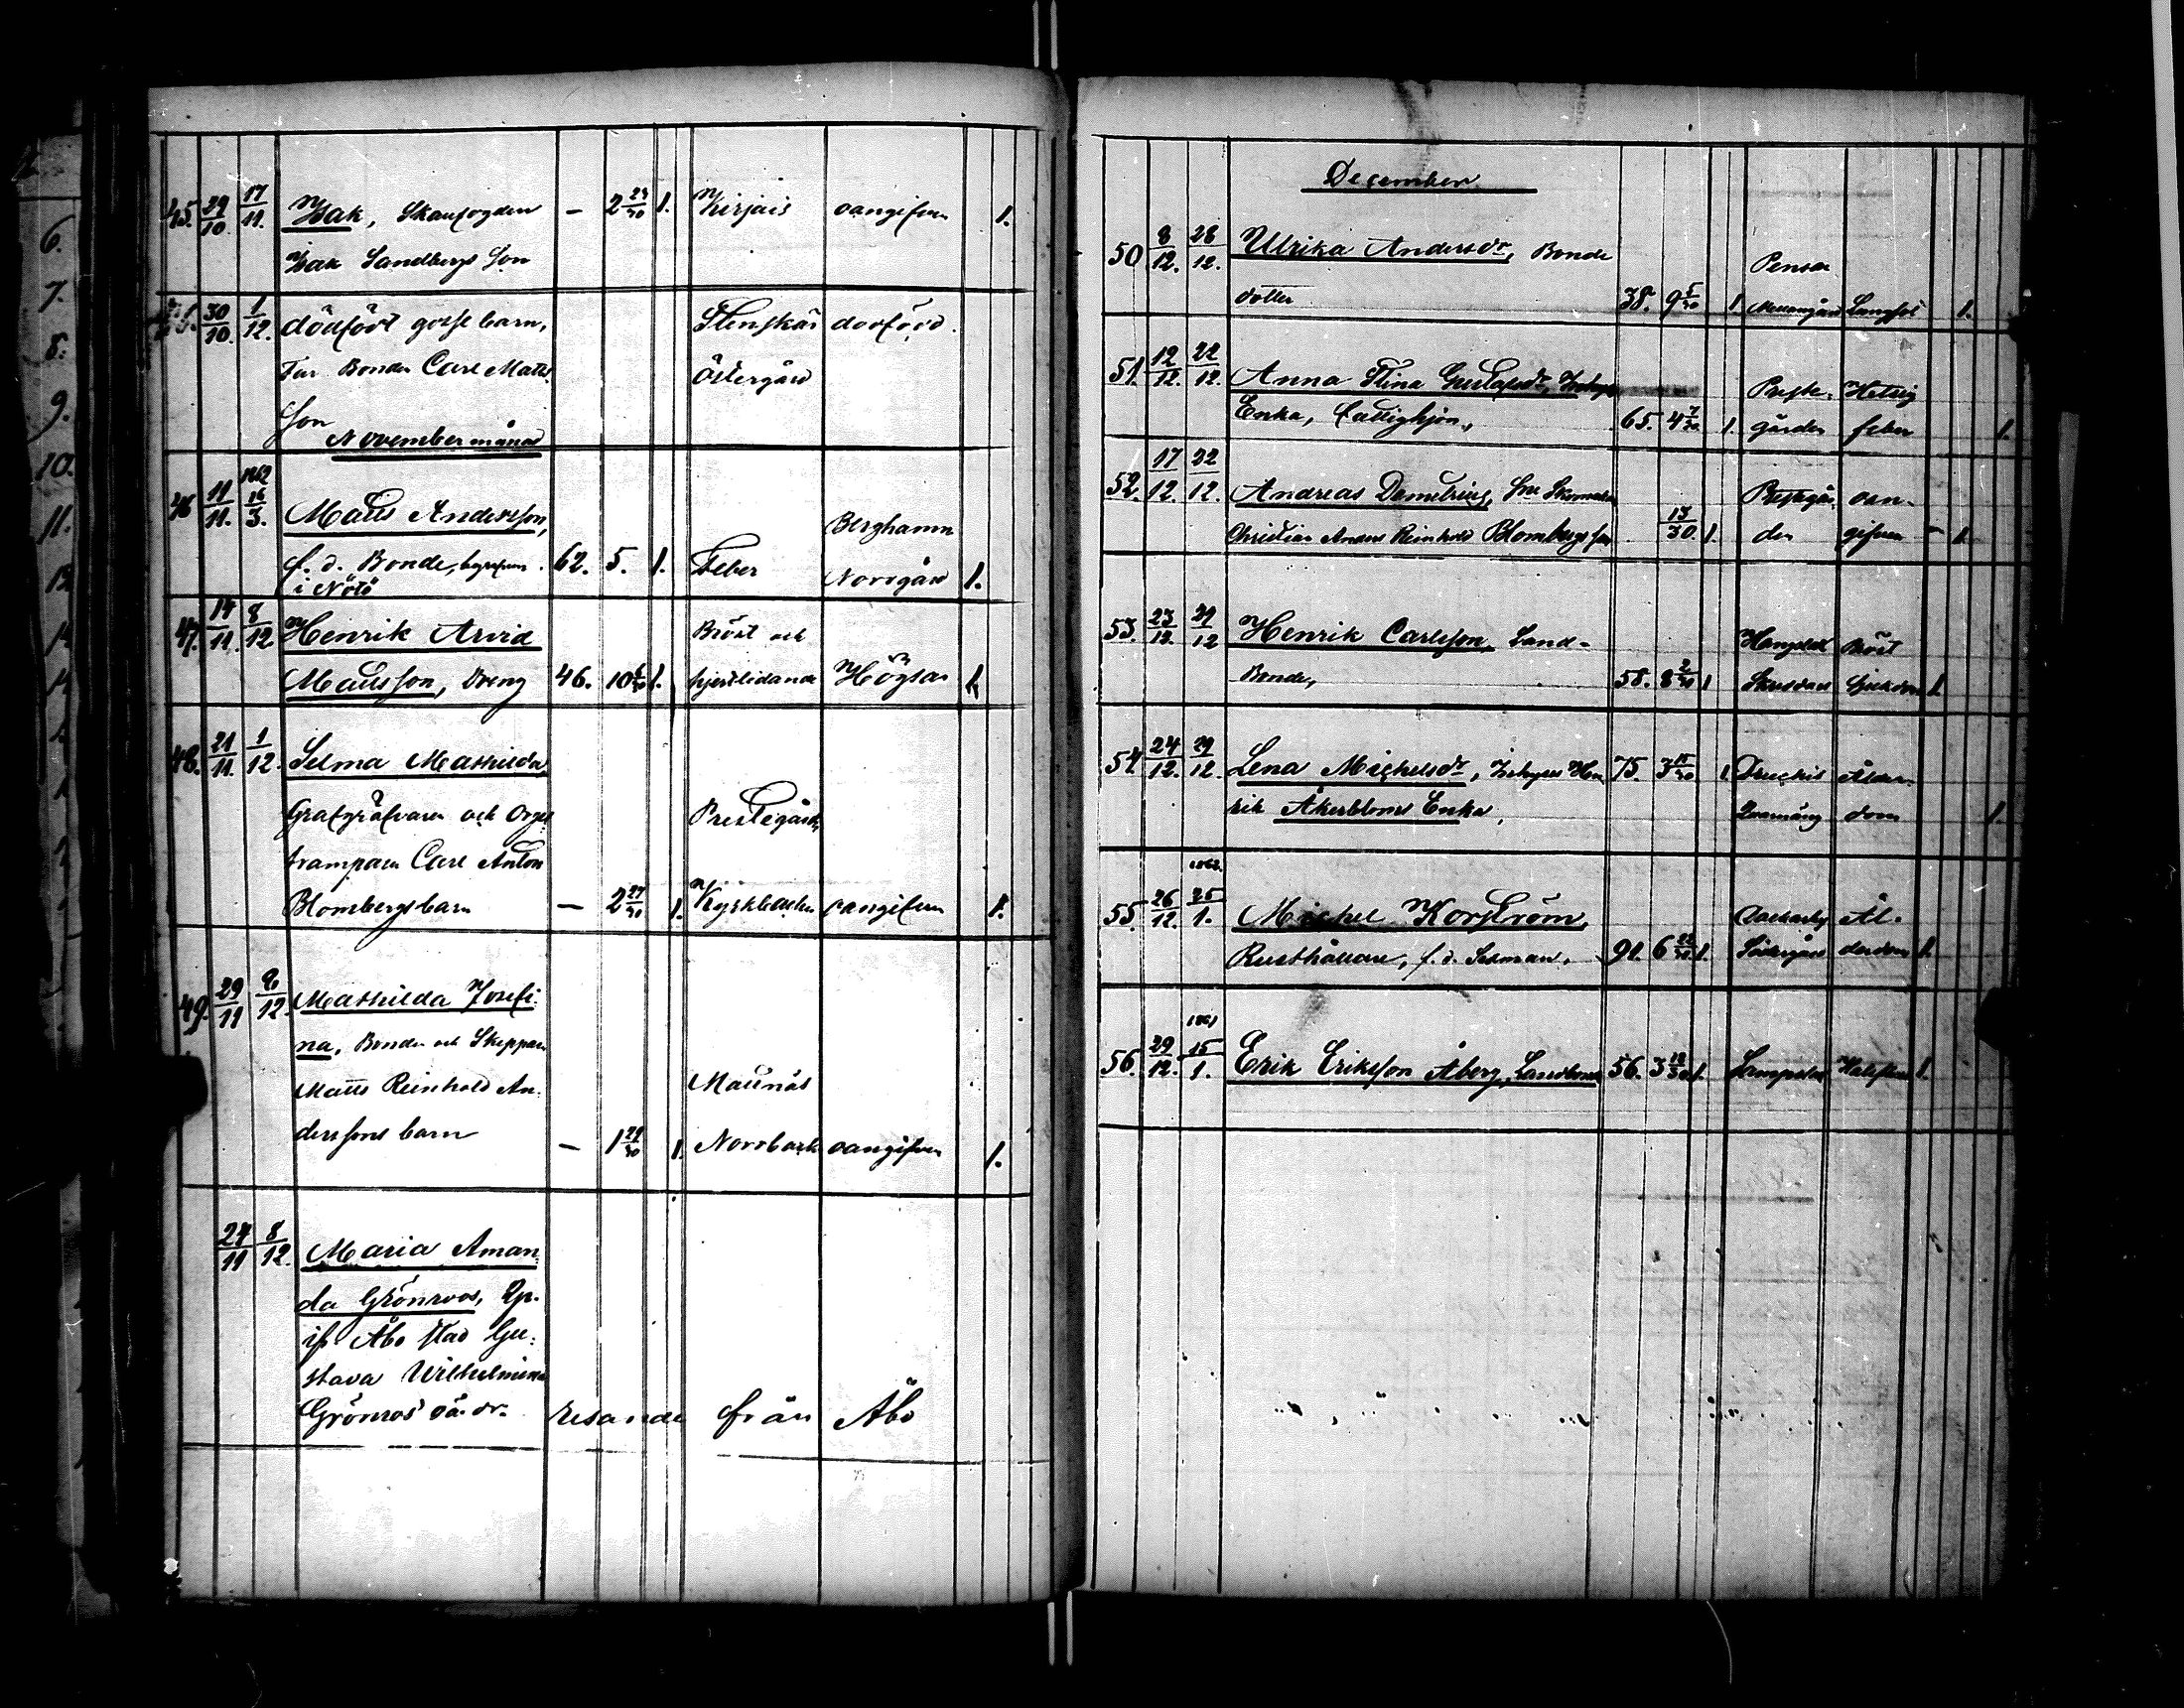 45. 29/10. 17/11. Isak, Skaufogden – 2 24/30 1. Kirjais oangifven 1.
Isak Sandbergs son
30/10. 1/12. dödfödt gosse barn, Stenskär dödfödd.
Far Bonden Carl Matts- Östergård
son
November månad
46 11/11. 1862 16/3. Matts Andersson,
Berghamn
f. d. Bonde, begrafven 62. 5. 1. Feber Norrgård 1.
i Nötö
47. 14/11. 8/12 Henrik Arvid Bröst och
Mattsson, Dreng 46. 10 6/30 1. hjertlidande Högsar 1.
48. 21/11. 1/12. Selma Mathilda,
Grafgräfvaren och Orgel Prestegårds
tramparen Carl Anton
Blombergs barn – 2 27/30 1. Kyrkbacken oangifven 1.
49. 29/11 8/12. Mathilda Josefi-
na, Bonden och Skepparen
Matts Reinhold An- Mattnäs
derssons barn – 1 29/30 1. Norrback oangifven 1.
27/11 8/12. Maria Aman-
da Grönroos, Pp.
ifr Åbo stad Gu-
stava Wilhelmina
Grönros' oä. dr. resande från Åbo
December.
50 8/12. 28/12. Ulrika Andersdr, Bonde Pensar
dotter 38. 9 5/30 1 Mellangård Lungsot 1.
51. 12/12. 22/12. Anna Stina Gustafsdr, Inhyses Preste- Hetsig
Enka, Fattighjon, 65. 4 7/30 1. gården feber 1.
52. 17/12. 22/12. Andreas Demetrius, Skomakaren Prestegår- oan-
Christian Anders Reinhold Blombergs son 13/30. 1. den gifven – 1.
53. 23/12. 29/12 Henrik Carlsson, Land- Bröst
Bonde, 58. 8 2/30 1 Sjukdom 1
54 24/12. 29/12. Lena Michelsdr, Inhyses Hen 75. 3 15/30 1. Ålder-
rik Åkerbloms Enka, dom 1.
55. 26/12. 1862. 25/1. Michel Korström, Ål-
Rusthållare, f. d. Sexman. 91. 6 22/30 1. Södergård derdom 1.
56. 29/12. 15/1. Erik Eriksson Åberg, Landbonde 56. 3 12/30 1. 1.